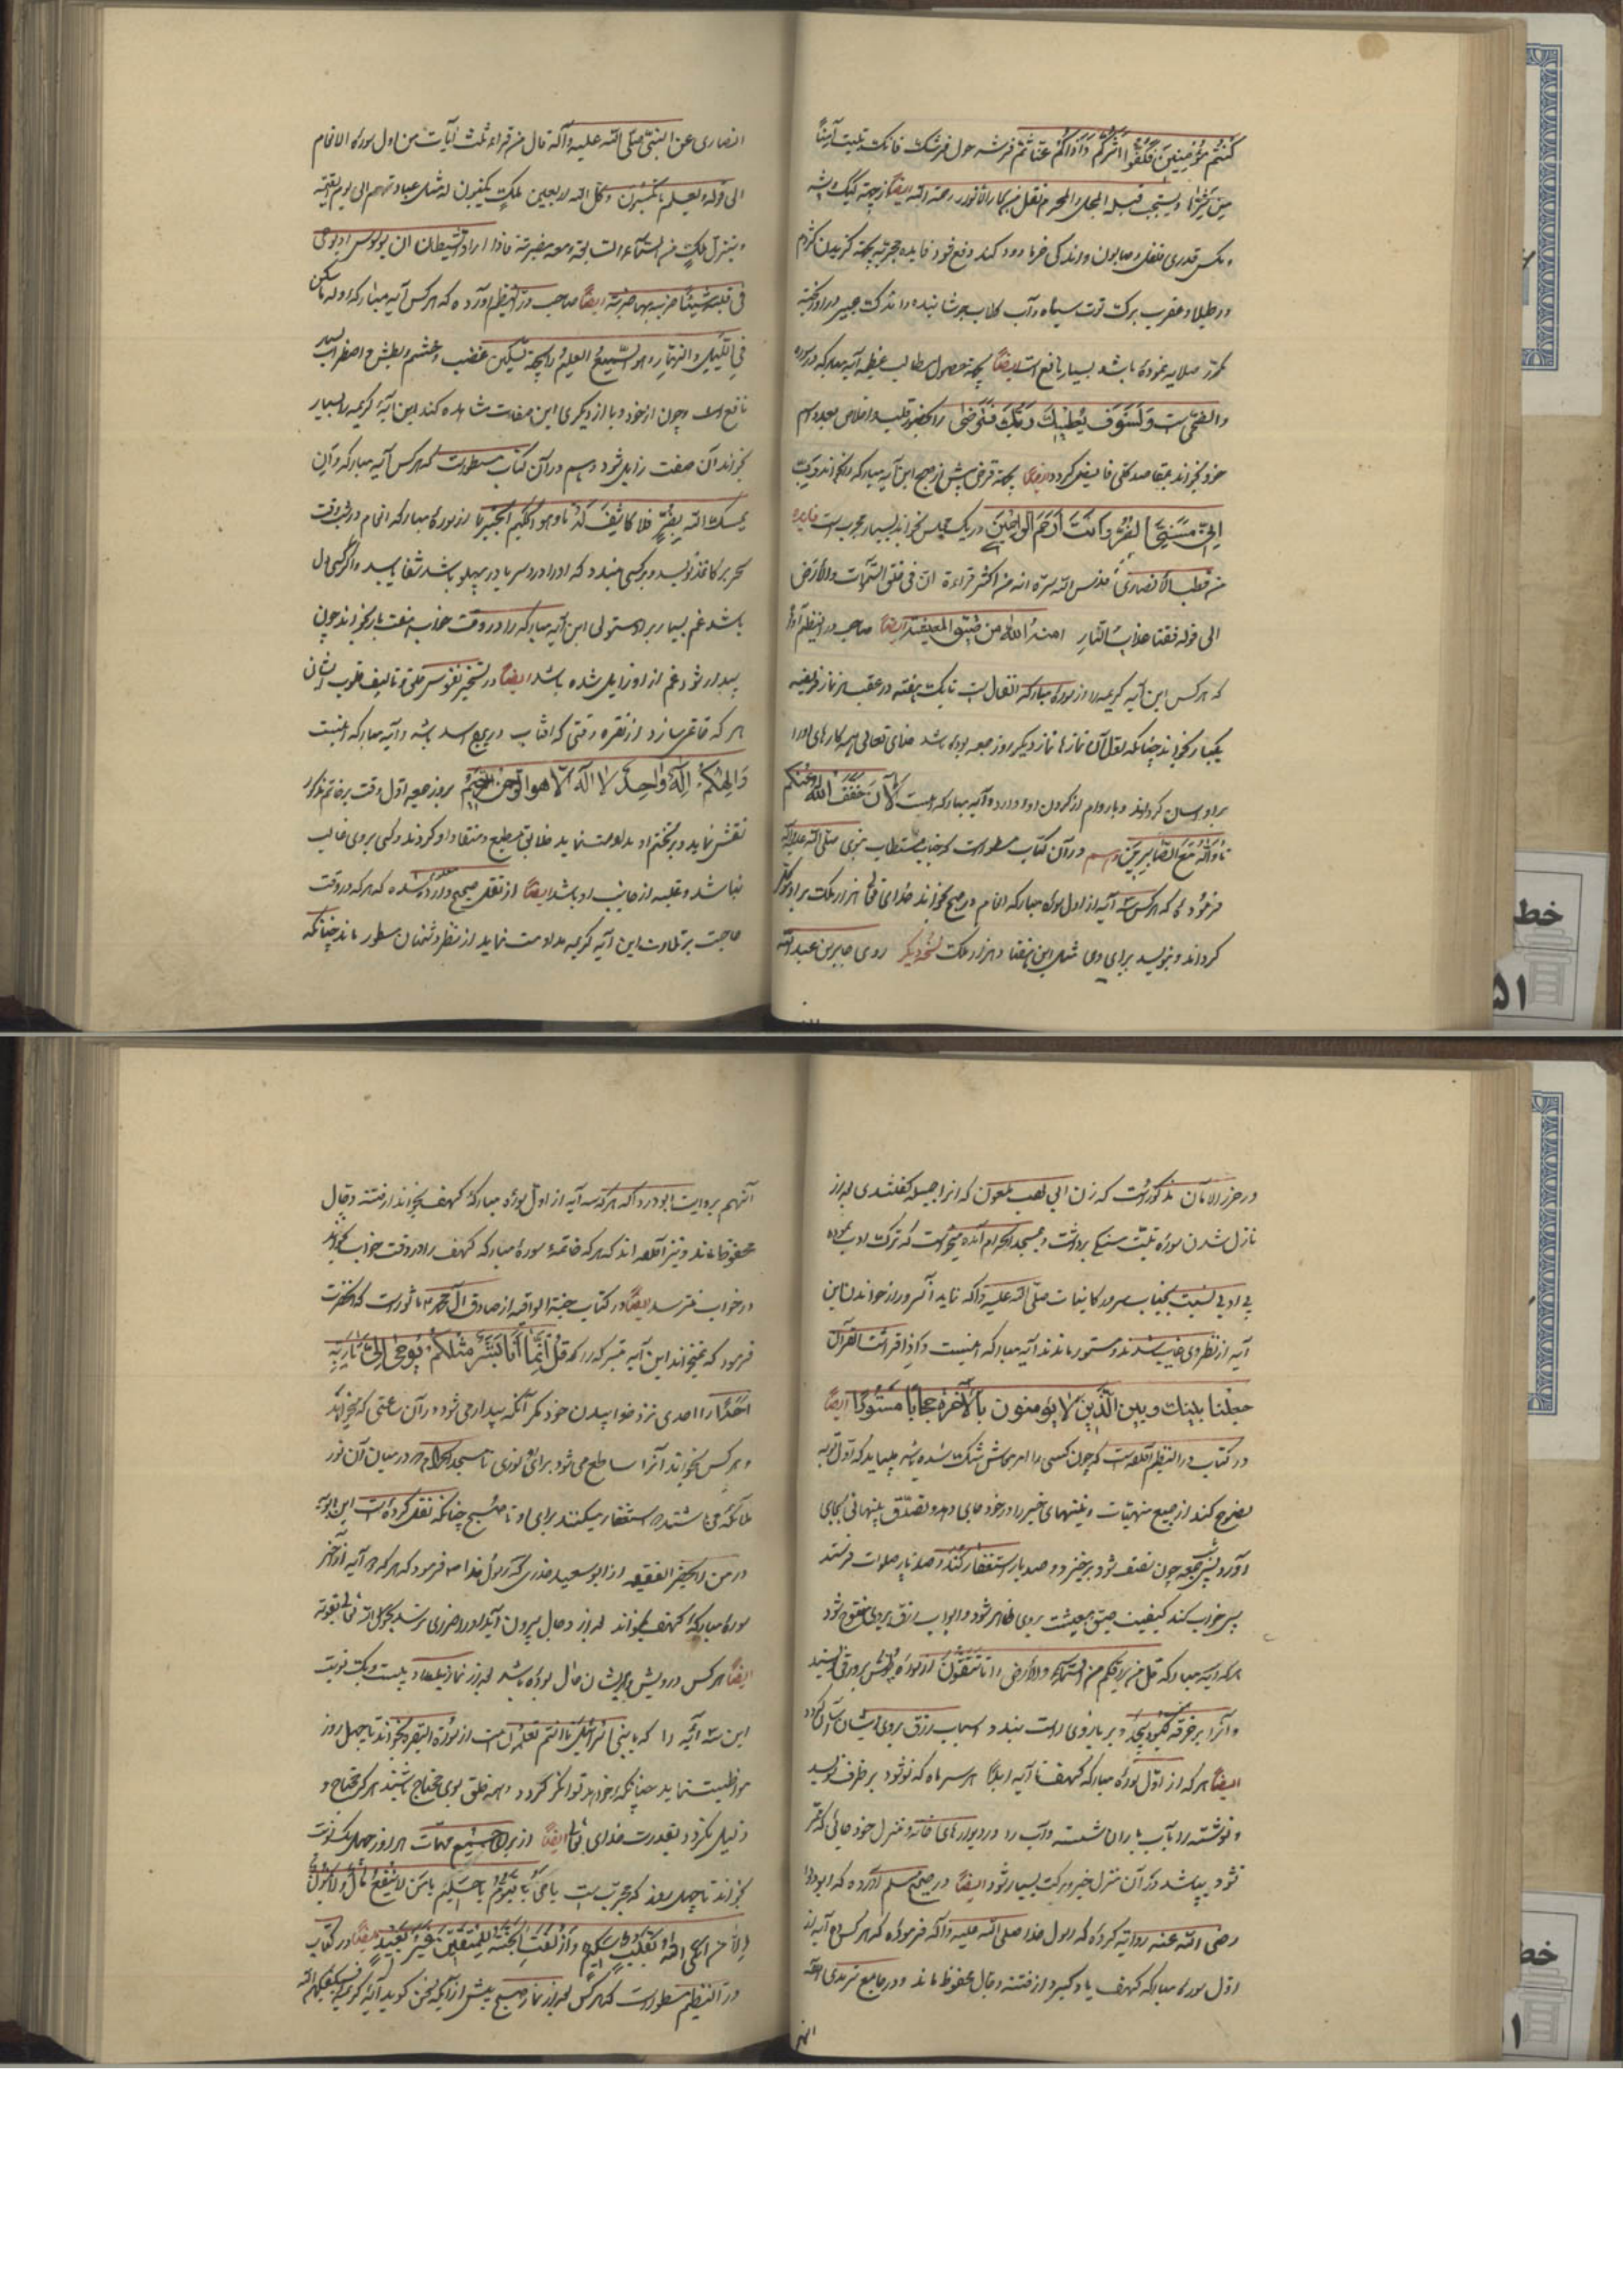 کنتم مؤمنین فکفوا شرکم و اذاکم عنا ثم فرشه حول فرشک فانک تبیت آمنا
من شرها و یستحب قبل المحرم نقل من بحار الانوار رحمة الله ایضا از جهة کیک و پشه
و مکس قدری فلفل و صابون و اندکی خرما دود کند دفع فایده مجربه جهة کزیدن کژدم
و رطیلا و عقرب برک توت سیاه در آب کلاب جوشانیده
نموده باشد بسیار نافع است ایضا بجهة حصول مطالب عظیمه آیه مبارکه در سوره
والضحی است ولسوف یعطیک ربک فترضی را بحضور قلب و اخلاص بعدد اسم
خود بخواند بمقاصد کلی فایض کردد ایضا بجهة قرض پیش از صبح این آیه مبارکه را بخواند
انی مسنی الضر وانت ارحم الراحمین در یک مجلس بخواند بسیار مجرب است فایده
من قطب الانصاری قدس الله سره انه من اکثر قراءة ان فی خلق السموات والارض
الی قوله فقنا عذاب النار امنه الله من ضیق المعیشة ایضا صاحب در النظیم آورده
که هر کس این آیه کریمه را از سوره مبارکه انفال است تا یک هفته در عقب هر نماز فریضه
یکبار بخواند چنانکه اول آن نمازها نماز دیگر روز جمعه بوده باشد خدای تعالی همه کارهای او را
بر او آسان کرداند و بار وام از کردن او بردارد و آیه مبارکه اینست الآن خفف الله عنکم
تا والله مع الصابرین و هم در آن کتاب مسطور است که جناب مستطاب نبوی صلی الله علیه وآله
فرموده که هر کس سه آیه از اول سوره مبارکه انعام در صبح بخواند خدای تعالی هزار ملک بر او موکل
کرداند و بنویسد برای وی مثل این هفتاد هزار ملک نسخه دیگر روی جابر بن عبدالله
انصاری عن النبی صلی الله علیه وآله قال من قراء ثلث آیات من اول سورة الانعام
الی قوله و یعلم ما تکسبون وکل الله اربعین ملک یکتبون له مثل عبادتهم الی یوم القیمة
و ینزل ملک من السماء السابعة و معه مضربة فاذا اراد الشیطان ان یوسوس او یوحی
فی قلبه شیئا ضربه بها ضربة ایضا صاحب در النظیم آورده که هر کس آیه مبارکه وله ما سکن
فی اللیل والنهار وهو السمیع العلیم را بجهة تسکین غضب و خشم و بطش و اضطراب بسیار
نافع است و چون از خود و یا از دیگری این صفات مشاهده کند این آیه کریمه را بسیار
بخواند آن صفت زایل شود و هم در آن کتاب مسطور است که هر کس آیه مبارکه وان
یمسک الله بضر فلا کاشف له تا وهو الحکیم الخبیر را از سوره مبارکه انعام در شب وقت
سحر بر کاغذ نویسد و بر کسی بندد که او را درد سر یا درد پهلو باشد شفا یابد و اگر کسی را دل
باشد غم بسیار بر او مستولی این آیه مبارکه را در وقت خواب هفت بار بخواند چون
بیدار شود غم از او زایل شده باشد ایضا در تسخیر نفوس خلق و تالیف قلوب ایشان
هر که خاتمی سازد از نقره وقتی که آفتاب در برج اسد باشد و آیه مبارکه اینست
والهکم اله واحد لا اله الا هو الرحمن الرحیم بروز جمعه اول وقت بر خاتم مذکور
نقش نماید و بر تختم او مداومت نماید خلایق مطیع و منقاد او کردند و کسی بر وی غالب
نباشد و غلبه از جانب او باشد ایضا از نقل صحیح وارد شده که هر که در وقت
حاجت بر تلاوت این آیه کریمه مداومت نماید از منظر دشمنان مستور ماند چنانکه
در حرز الامان مذکور است که زن ابی لهب ملعون که ام جمیله گفتندی بعد از
نازل شدن سوره تبت سنگی برداشت و بمسجد الحرام آمده میخواست که ترک ادب نموده
بی ادبی نسبت بجناب سرور کاینات صلی الله علیه وآله نماید آنسرور از خواندن این
آیه از نظر وی غایب شدند و مستور ماندند آیه مبارکه اینست واذا قرات القرآن
جعلنا بینک وبین الذین لا یؤمنون بالآخرة حجابا مستورا ایضا
در کتاب در النظیم آمده است که چون کسی را امر معاش تنگ شده باشد باید که اول توبه
نصوح کند از جمیع منهیات و نیتهای خیر را در خود جای دهد و تصدق پنهانی بجای
آورد و شب جمعه چون نصف شود برخیزد و صد بار استغفار کند و صد بار صلوات فرستد
پس خواب کند کیفیت ضیق معیشت بر وی ظاهر شود و ابواب رزق بر وی مفتوح شود
هر که آیه مبارکه قل من یرزقکم من السماء والارض را تا تتقون از سوره یونس بر ورقی نویسد
و آنرا بر خرقه کبود پیچد و بر بازوی راست بندد اسباب رزق بر وی آسان کردد
ایضا هر که از اول سوره مبارکه کهف تا آیه ابدا هر سر ماه که نو شود بر ظرف نویسد
و نوشته را بآب باران شسته و آب را در دیوارهای خانه و منزل خود جائی که تر
نشود بپاشد در آن منزل خیر و برکت بسیار شود ایضا در صحیح مسلم آورده که ابودردا
رضی الله عنه روایة کرده که رسول خدا صلی الله علیه وآله فرموده که هر کس ده آیه از
اول سوره مبارکه کهف یاد کیرد از فتنه دجال محفوظ ماند و در جامع ترمذی آمده
انهم
آنهم بروایت ابودردا که هر که سه آیه از اول سوره مبارکه کهف بخواند از فتنه دجال
محفوظ ماند و نیز آمده اند که هر که خاتمه سوره مبارکه کهف را در وقت خواب بخواند
در خواب نترسد ایضا در کتاب جنة الواقیه از صادق آل محمد ماثور است که آنحضرت
فرمود که نمیخواند این آیه متبرکه را که قل انما انا بشر مثلکم یوحی الی تا ربه
احدا را احدی نزد خوابیدن خود مکر آنکه بیدار می شود در آن ساعتی که میخواهد
و هر کس بخواند آنرا ساطع می شود برای او نوری تا مسجد الحرام که در میان آن نور
ملائکه می باشند که استغفار میکنند برای او تا صبح چنانکه نقل کرده است ابن بابویه
در من لایحضر الفقیه از ابو سعید خدری که رسول خدا ص فرمود که هر که ده آیه از آخر
سوره مبارکه کهف بخواند بعد از دجال بیرون آید او را ضرری نرسد بحول الله تعالی و قوته
ایضا هر کس درویش و پریشان حال بوده باشد بعد از نماز بامداد بیست و یک نوبت
این سه آیه را که یا بنی اسرائیل تا انتم تعلمون است از سوره البقره بخواند تا چهل روز
مواظبت نماید چنانکه خواهد توانگر کردد و همه خلق بوی محتاج باشند هرگز محتاج و
ذلیل نکردد بقدرت خدای تعالی ایضا از برای جمیع مهمات هر روز چهل و یک نوبت
بخواند تا چهل روز که مجرب است یا حی یا قیوم یا حلیم یا من لا ینفع مال ولا بنون
الا من اتی الله بقلب سلیم وازلفت الجنة للمتقین غیر بعید ایضا در کتاب
در النظیم مسطور است که هر کس بعد از نماز صبح پیش از آنکه سخن کوید آیه کریمه فسیکفیکهم الله